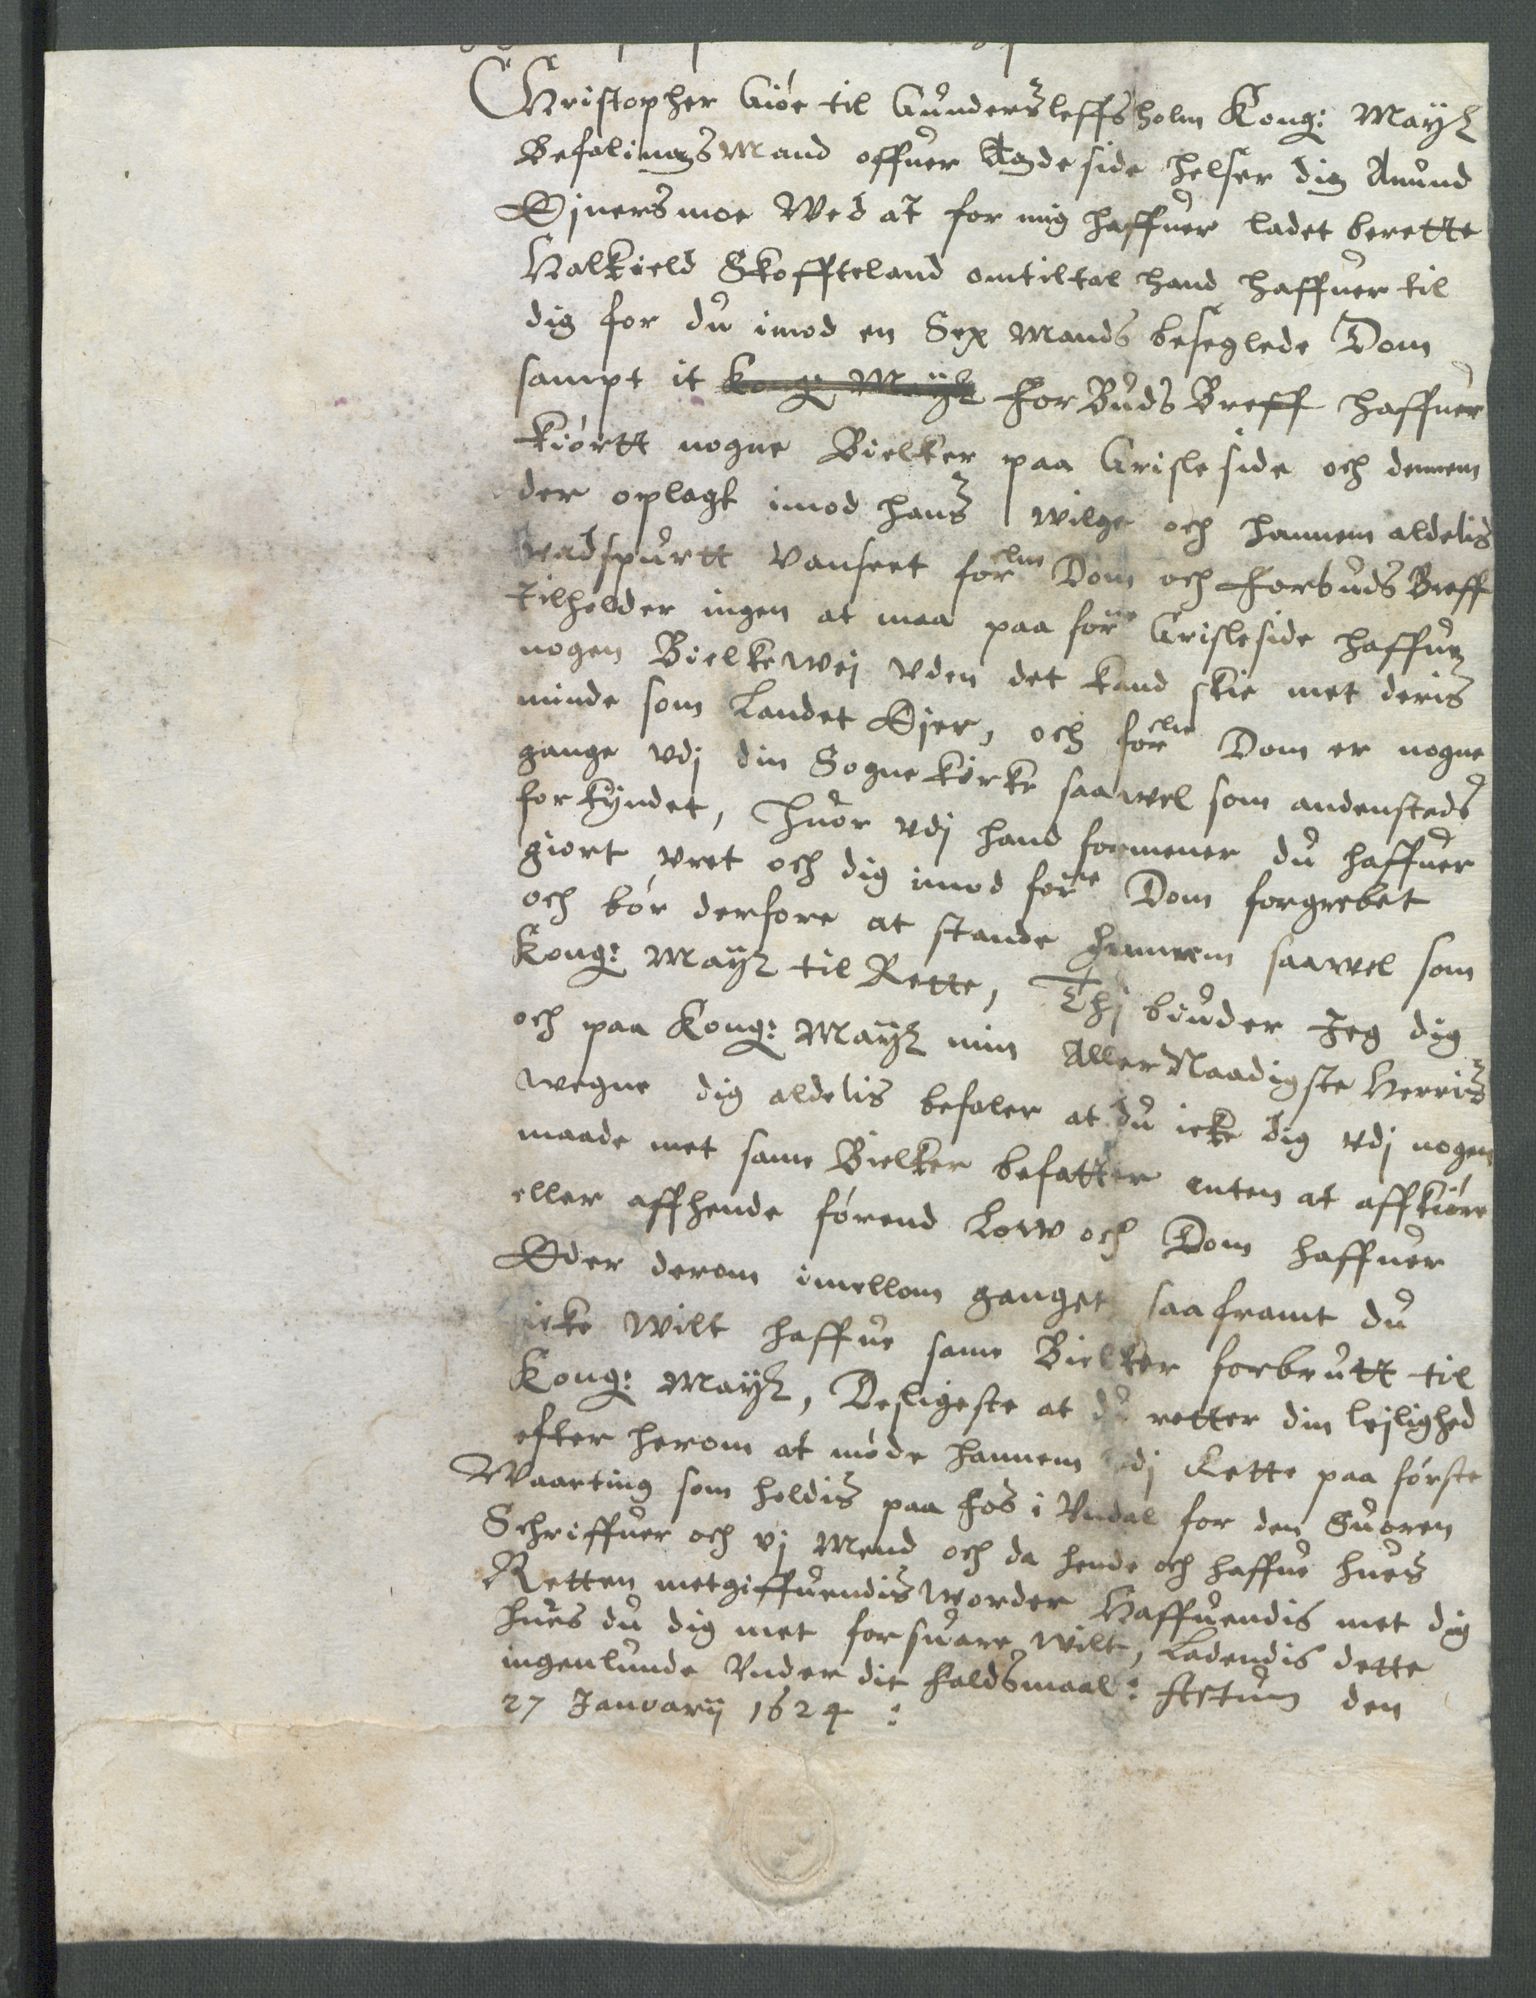 Christopher Giøe til Gundersleffsholm Kong: Mayts
Befalingsmand offuer Agdeside helser dig Anund
Ejnersmoe Wed at for mig haffuer ladet berette
Halkield Skoffteland om tiltal hand haffuer til
dig for du imod en Sex Mands beseglede Dom
sampt it Kong: Mayts ForBuds Breff haffuer
kiørtt nogne Bielker paa Grisleside och dennem
der oplagt imod hans wilge och hannem aldelis
vadspurtt Vanseet forelne Dom och Forbuds Breff
tilholder ingen at maa paa forne Grisleside haffue
nogen Bielkewej vden det kand skie met deris
minde som Landet Ejer, och forelne Dom er nogne
gange vdj din Sognekircke saawel som andensteds
forkyndet, Huor vdj hand formener du haffuer
giort vret och dig imod forne Dom forgrebet
och bør derfore at stande hannem saawel som
Kong: Mayts til Rette, Thj biuder Jeg dig
och paa Kong: Mayts min AllerNaadigste Herris
wegne dig aldelis befaler at du icke dig vdj nogen
maade met same Bielker befatter enten at affkiøre
eller affhende førend Low och Dom haffuer
Eder derom imellom ganget saaframt du
icke wilt haffue same Bielker forbrutt til
Kong: Mayts, Desligeste at du retter din lejlighed
efter herom at møde hannem vdj Rette paa første
Waarting som holdis paa Fos i Vndal for den Suoren
Schriffuer och vj Mend och da hende och haffue hues
Retten metgiffuendis worder Haffuendis met dig
hues du dig met forsuare wilt, Ladendis dette
ingenlunde Vnder dit Faldsmaal: Actum den
27 Januarij 1624 :